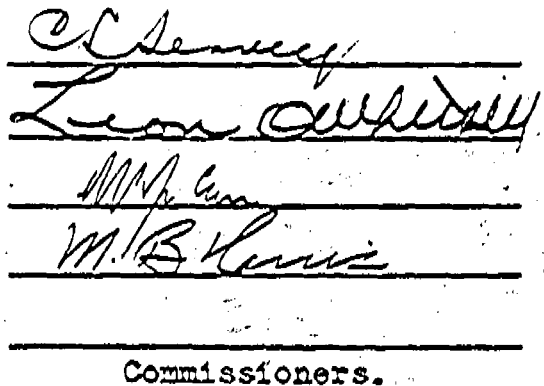 C C Seavey
Leon O Whitsell
M B Harris
Commissioners.